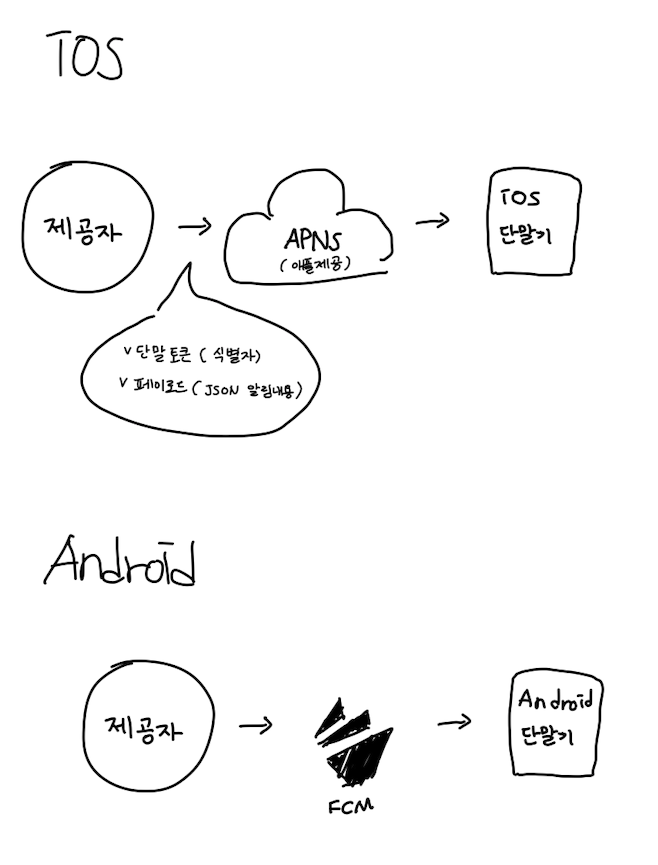 iOS
제공자
APNS
(애플제공)
iOS
단말기
v 단말 토큰 (식별자)
v 페이로드 (JSON 알림내용)
Android
제공자
FCM
Android
단말기